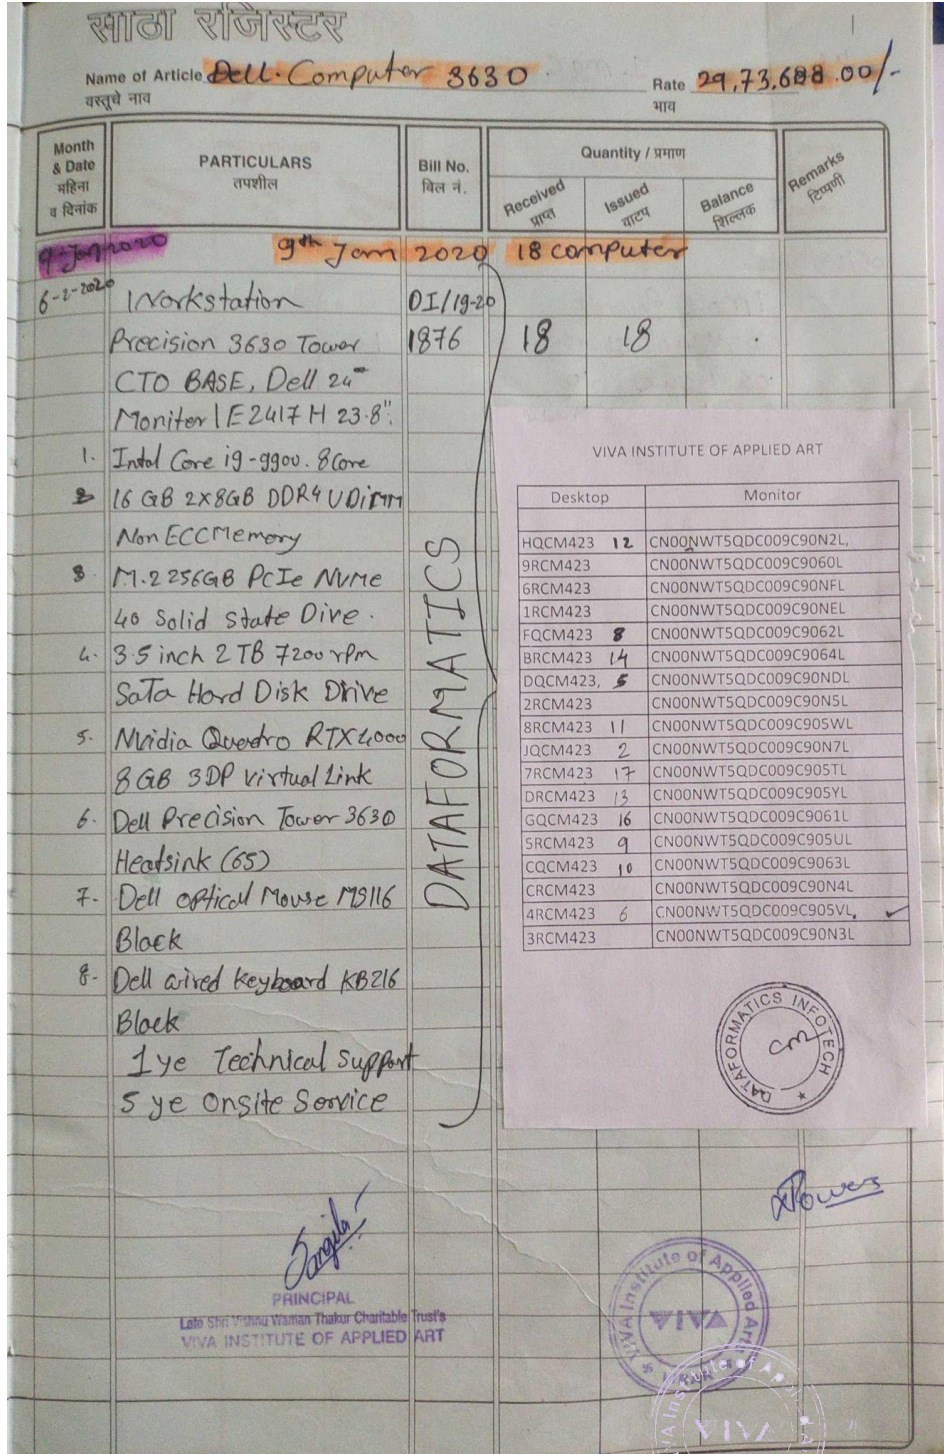 साठा रजिस्टर
1
Name of Article Dell. Computer 3630
वस्तूचे नाव
Rate 29,73,688.00/-
भाव
Month & Date
महिना व दिनांक
PARTICULARS
तपशील
Bill No.
बिल नं.
Quantity / प्रमाण
Received
प्राप्त
Issued
वाटप
Balance
शिल्लक
Remarks
टिप्पणी
9-Jan 2020 9th Jan 2020 18 computer
6-2-2020 Workstation DI/19-20
Precision 3630 Tower 1876 18 18
CTO BASE, Dell 24"
Monitor | E2417H 23.8".
1. Intal Core i9-9900. 8Core
2 16 GB 2X8GB DDR4 UDIMM
Non ECC Memory
3 M.2 256GB PCIe NVMe
40 Solid State Dive.
4. 3.5 inch 2 TB 7200 rpm
SaTa Hard Disk Drive
5. Nvidia Quadro RTX4000
8GB 3DP Virtual Link
6. Dell Precision Tower 3630
Heatsink (65)
7. Dell optical Mouse MS116
Black
8. Dell wired keyboard KB216
Black
1 ye Technical Support
5 ye Onsite Service
DATAFORMATICS
VIVA INSTITUTE OF APPLIED ART
Desktop Monitor
HQCM423 12 CN00NWT5QDC009C90N2L,
9RCM423 CN00NWT5QDC009C9060L
6RCM423 CN00NWT5QDC009C90NFL
1RCM423 CN00NWT5QDC009C90NEL
FQCM423 8 CN00NWT5QDC009C9062L
BRCM423 14 CN00NWT5QDC009C9064L
DQCM423, 5 CN00NWT5QDC009C90NDL
2RCM423 CN00NWT5QDC009C90N5L
8RCM423 11 CN00NWT5QDC009C905WL
JQCM423 2 CN00NWT5QDC009C90N7L
7RCM423 17 CN00NWT5QDC009C905TL
DRCM423 13 CN00NWT5QDC009C905YL
GQCM423 16 CN00NWT5QDC009C9061L
5RCM423 9 CN00NWT5QDC009C905UL
CQCM423 10 CN00NWT5QDC009C9063L
CRCM423 CN00NWT5QDC009C90N4L
4RCM423 6 CN00NWT5QDC009C905VL,
3RCM423 CN00NWT5QDC009C90N3L
DATAFORMATICS INFOTECH
PRINCIPAL
Late Shri Vishnu Waman Thakur Charitable Trust's
VIVA INSTITUTE OF APPLIED ART
VIVA Institute of Applied Art
VIVA
VIVA Institute of Appl
VIVA